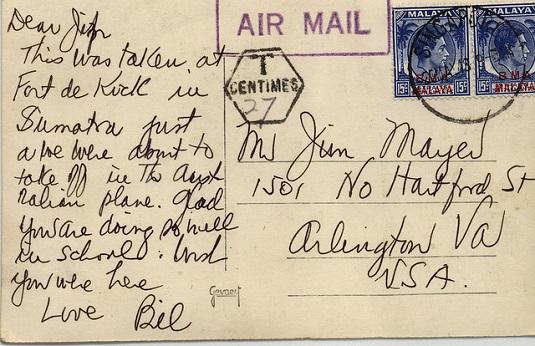 AIR MAIL
MALAYA MALAYA
15c 15c 15c
BMA BMA
MALAYA MALAYA
T
CENTIMES
27
Dear Jim
This was taken at
Fort de Kock in
Sumatra just
as we were about to
take off in the Aust
ralian plane. Glad
you are doing so well
in school. Wish
you were here
Love Bill
Mr Jim Mayer
1501 No Hartford St
Arlington Va
USA.